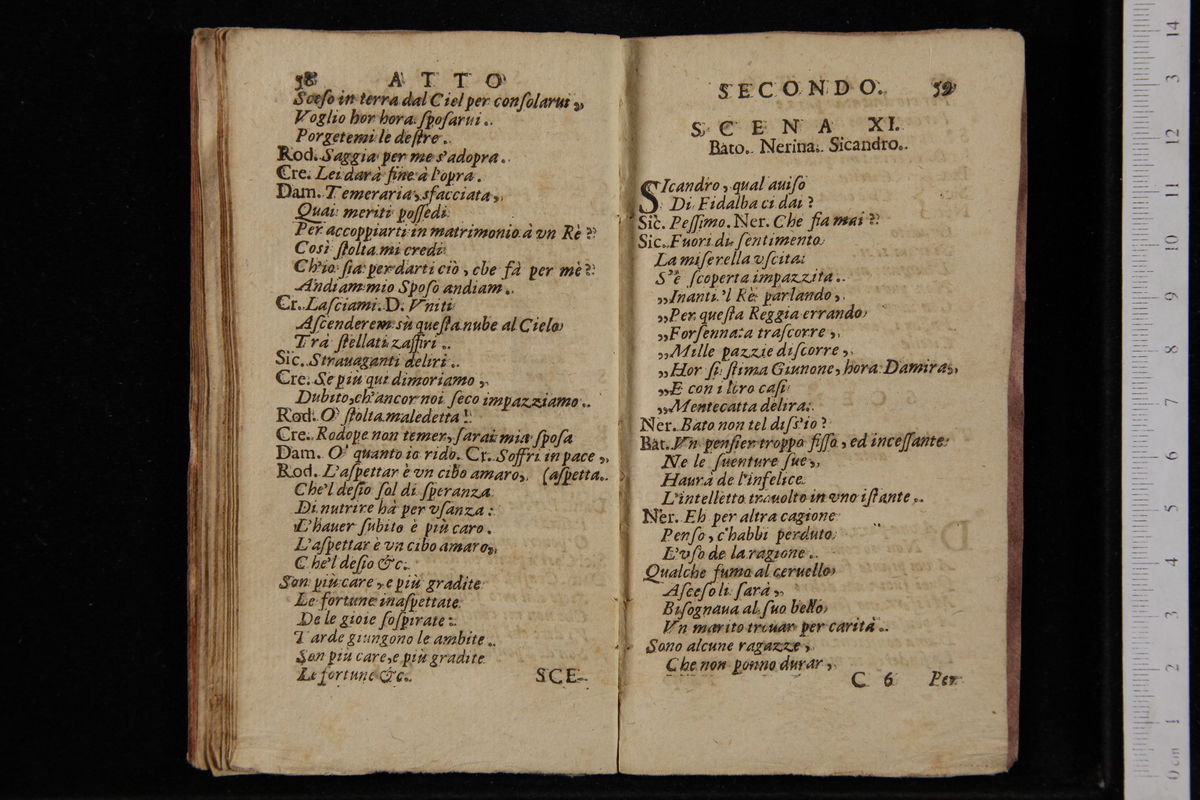 58 ATTO
Sceso in terra dal Ciel per consolarui,
Voglio hor hora sposarui.
Porgetemi le destre.
Rod. Saggia per me s'adopra.
Cre. Lei darà fine à l'opra.
Dam. Temeraria, sfacciata,
Quai meriti possedi
Per accoppiarti in matrimonio à vn Rè?
Così stolta mi credi
Ch'io sia per darti ciò, che fà per mè?
Andiam mio Sposo andiam.
Cr. Lasciami. D. Vniti
Ascenderem sù questa nube al Cielo
Trà stellati zaffiri.
Sic. Strauaganti deliri.
Cre. Se più qui dimoriamo,
Dubito, ch'ancor noi seco impazziamo.
Rod. O' stolta maledetta!
Cre. Rodope non temer, sarai mia sposa
Dam. O' quanto io rido. Cr. Soffri in pace,
Rod. L'aspettar è vn cibo amaro, (aspetta.
Che'l desio sol di speranza
Di nutrire hà per vsanza:
L'hauer subito è più caro.
L'aspettar è vn cibo amaro,
Che'l desio &c.
Son più care, e più gradite
Le fortune inaspettate
De le gioie sospirate:
Tarde giungono le ambite.
Son più care, e più gradite
Le fortune &c.
SCE-
SECONDO. 59
SCENA XI.
Bato. Nerina. Sicandro.
SIcandro, qual auiso
Di Fidalba ci dai?
Sic. Pessimo. Ner. Che fia mai?
Sic. Fuori di sentimento
La miserella vscita
S'è scoperta impazzita.
„Inanti 'l Rè parlando,
„Per questa Reggia errando
„Forsennata trascorre,
„Mille pazzie discorre,
„Hor si stima Giunone, hora Damira,
„E con i loro casi
„Mentecatta delira.
Ner. Bato non tel diss'io?
Bat. Vn pensier troppo fisso, ed incessante
Ne le suenture sue,
Haurà de l'infelice
L'intelletto trauolto in vno istante.
Ner. Eh per altra cagione
Penso, c'habbi perduto
L'vso de la ragione.
Qualche fumo al ceruello
Asceso li sarà,
Bisognaua al suo bello
Vn marito trouar per carità.
Sono alcune ragazze,
Che non ponno durar,
C 6 Per